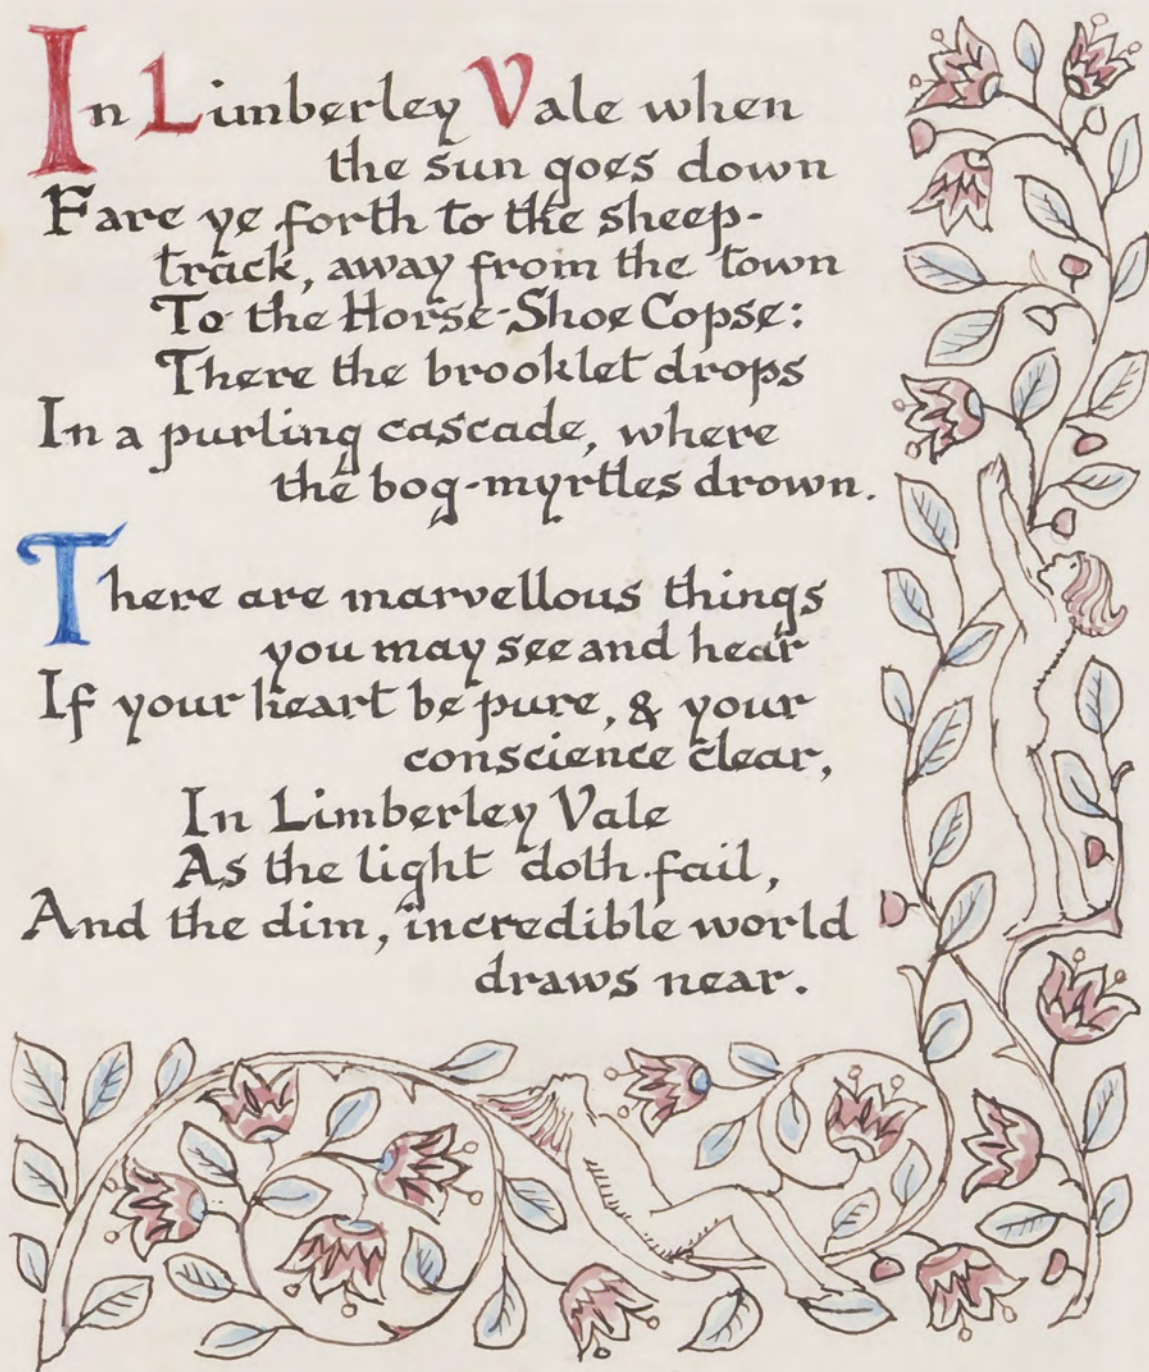 In Limberley Vale when
the sun goes down
Fare ye forth to the sheep-
track, away from the town
To the Horse-Shoe Copse:
There the brooklet drops
In a purling cascade, where
the bog-myrtles drown.
There are marvellous things
you may see and hear
If your heart be pure, & your
conscience clear,
In Limberley Vale
As the light doth fail,
And the dim, incredible world
draws near.